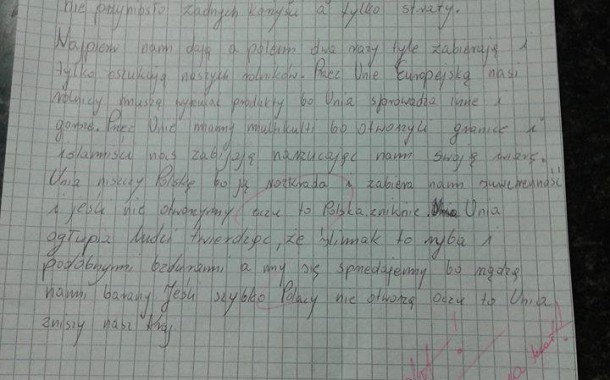 nie przyniosło żadnych korzyści a tylko straty.
Najpierw nam dają a potem dwa razy tyle zabierają i
tylko oszukują naszych rolników. Przez Unie Europejską nasi
rolnicy muszą wyrzucać produkty bo Unia sprowadza inne i
gorsze. Przez Unie mamy multikulti bo otworzyli granice i
islamiści nas zabijają narzucając nam swoją wiarę.
Unia niszczy Polskę bo ją rozkrada i zabiera nam suwerenność
i jeśli nie otworzymy oczu to Polska zniknie. Unia
ogłupia ludzi twierdząc, że ślimak to ryba i
podobnymi bzdurami a my się sprzedajemy bo rządzą
nami barany Jeśli szybko Polacy nie otworzą oczu to Unia
zniszy nasz kraj